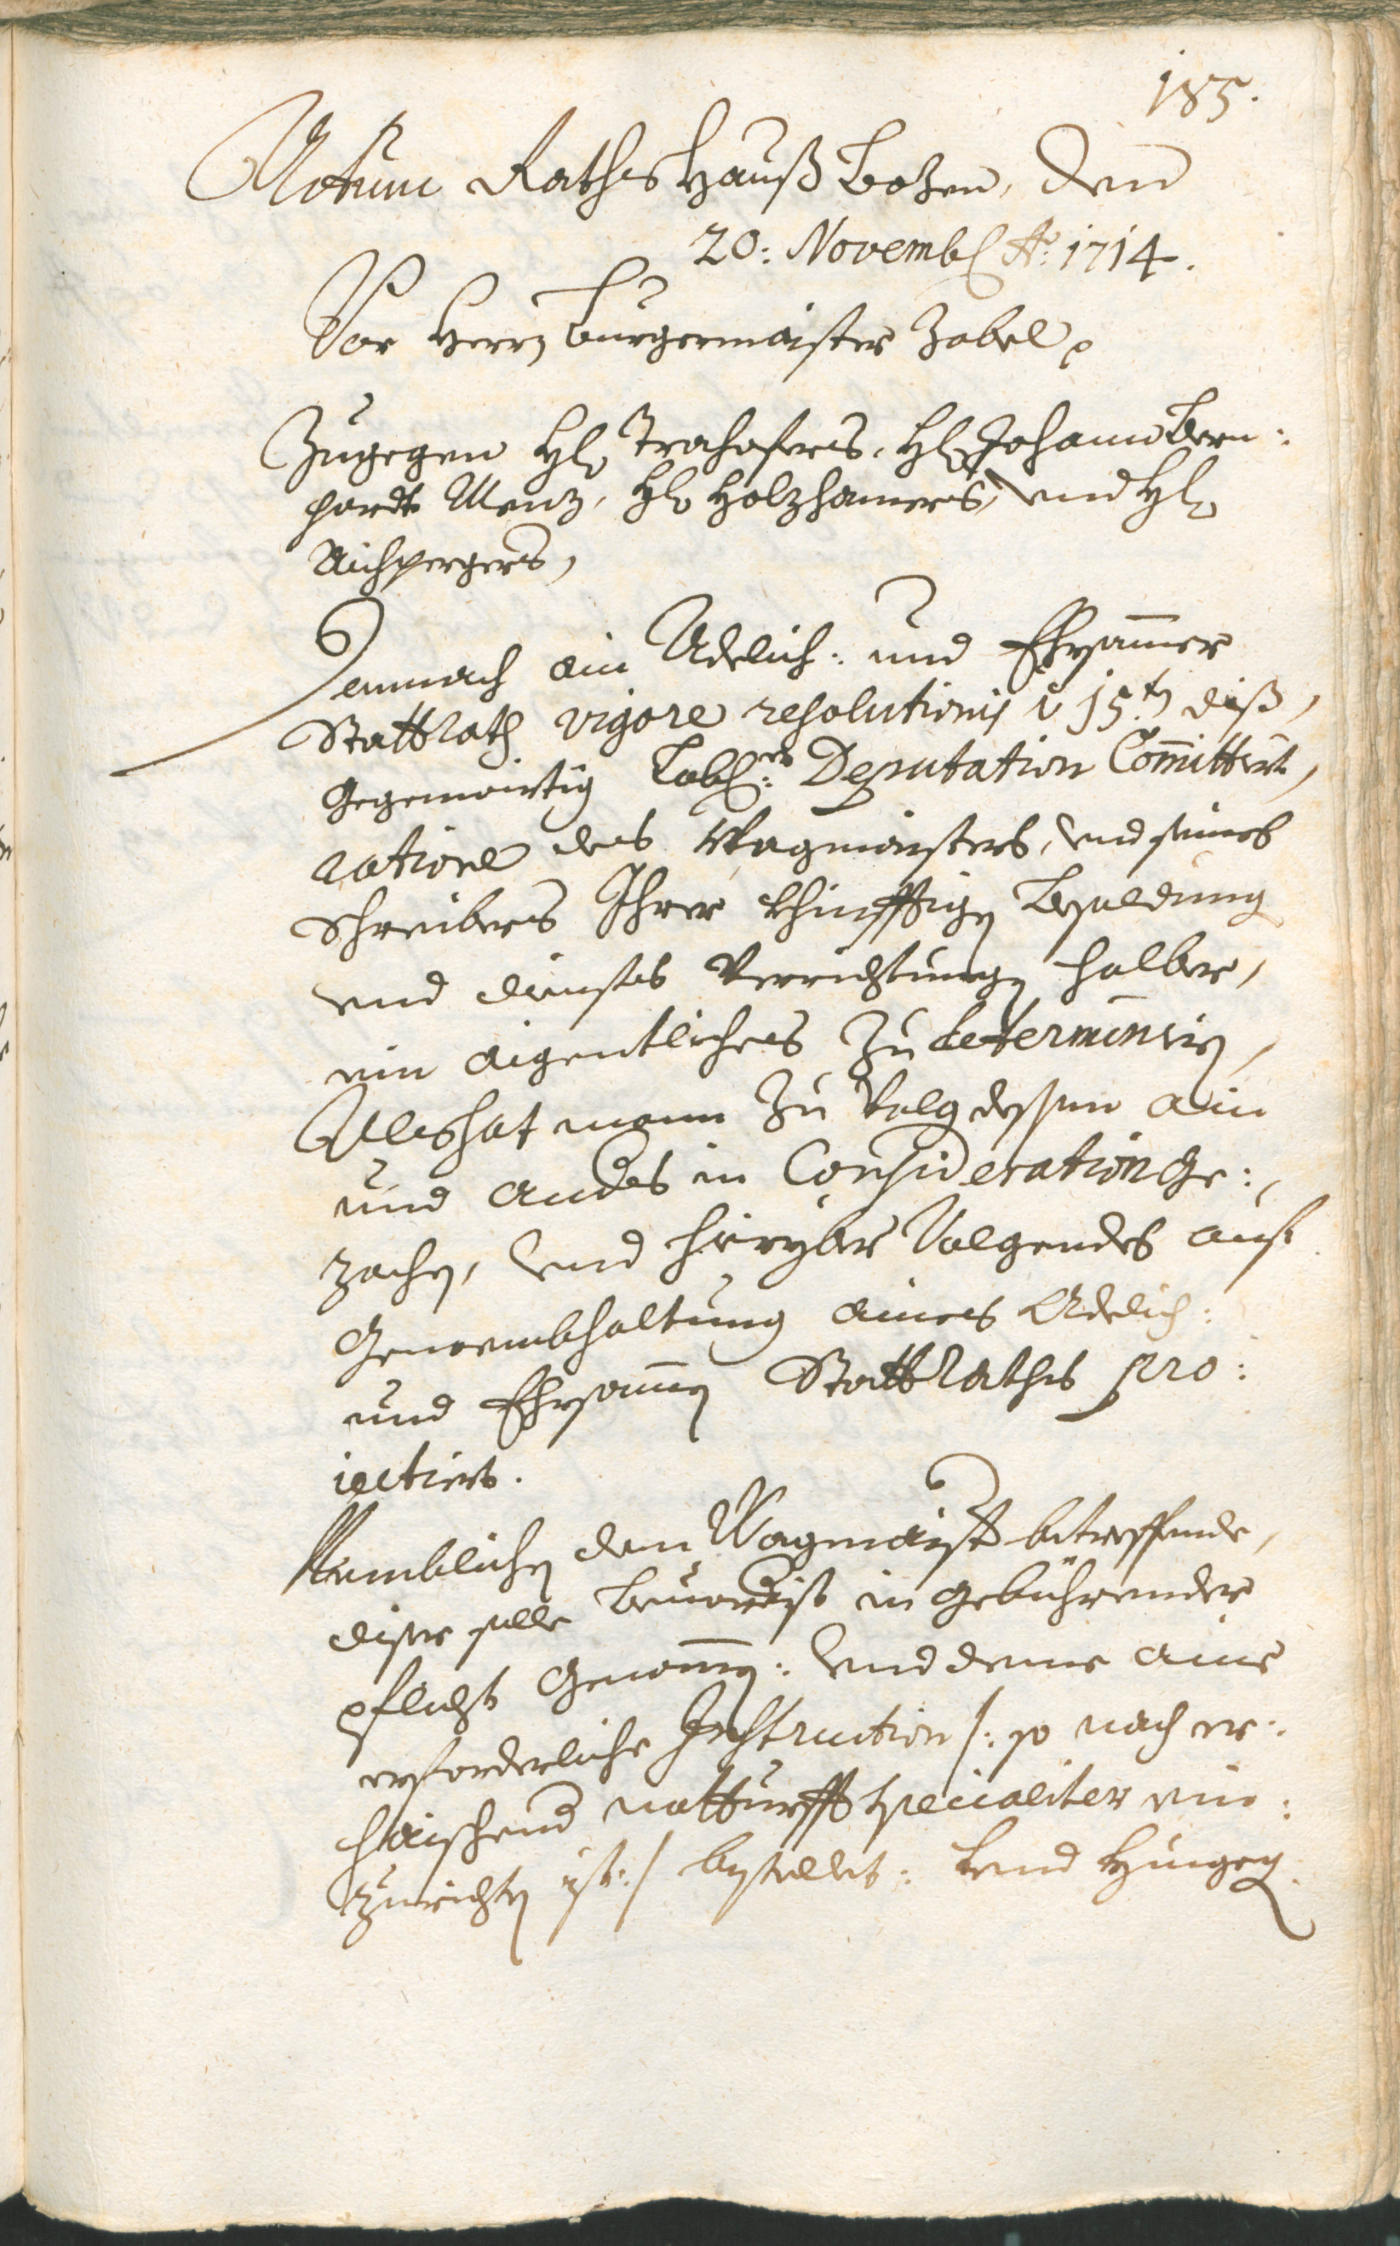 185.
Actum Rathshauß Botzen, den
20: Novembr Ao: 1714.
Vor Herrn Burgermaister Zobel
Zugegen Hr Trahofers, Hr Johann Bern:
hardt Menz, Hr Holzhamers, vnd Hr
Aichpergers,
Demnach ain Adelich: und Ehrsammer
Stattrath vigore resolutionis v 15.tn diß,
gegenwirtig Lobl:er Deputation Committiert,
ratione des Wagmaisters, vnd seines
Schreibers Ihrer khinfftign Besoldung
vnd dienstes Verrichtungn halber,
ein aigentliches zu determiniern,
Alls hat mann zu Volg dessen ain
und anders in Consideration Ge:
zochn, vnd hieryber Volgendes auf
Genemhaltung aines Adelich:
und Ehrsamen Stattraths pro:
iectiert.
Nemblichen den Wagmaistr betreffende,
diser solle Beuordist in gebührender
pflicht Genommen: vnd deme aine
erforderliche Instruction /: so nach er:
haischend notturfft specialiter ein:
zurichten ist :/ bestellet: vnd Hingegen